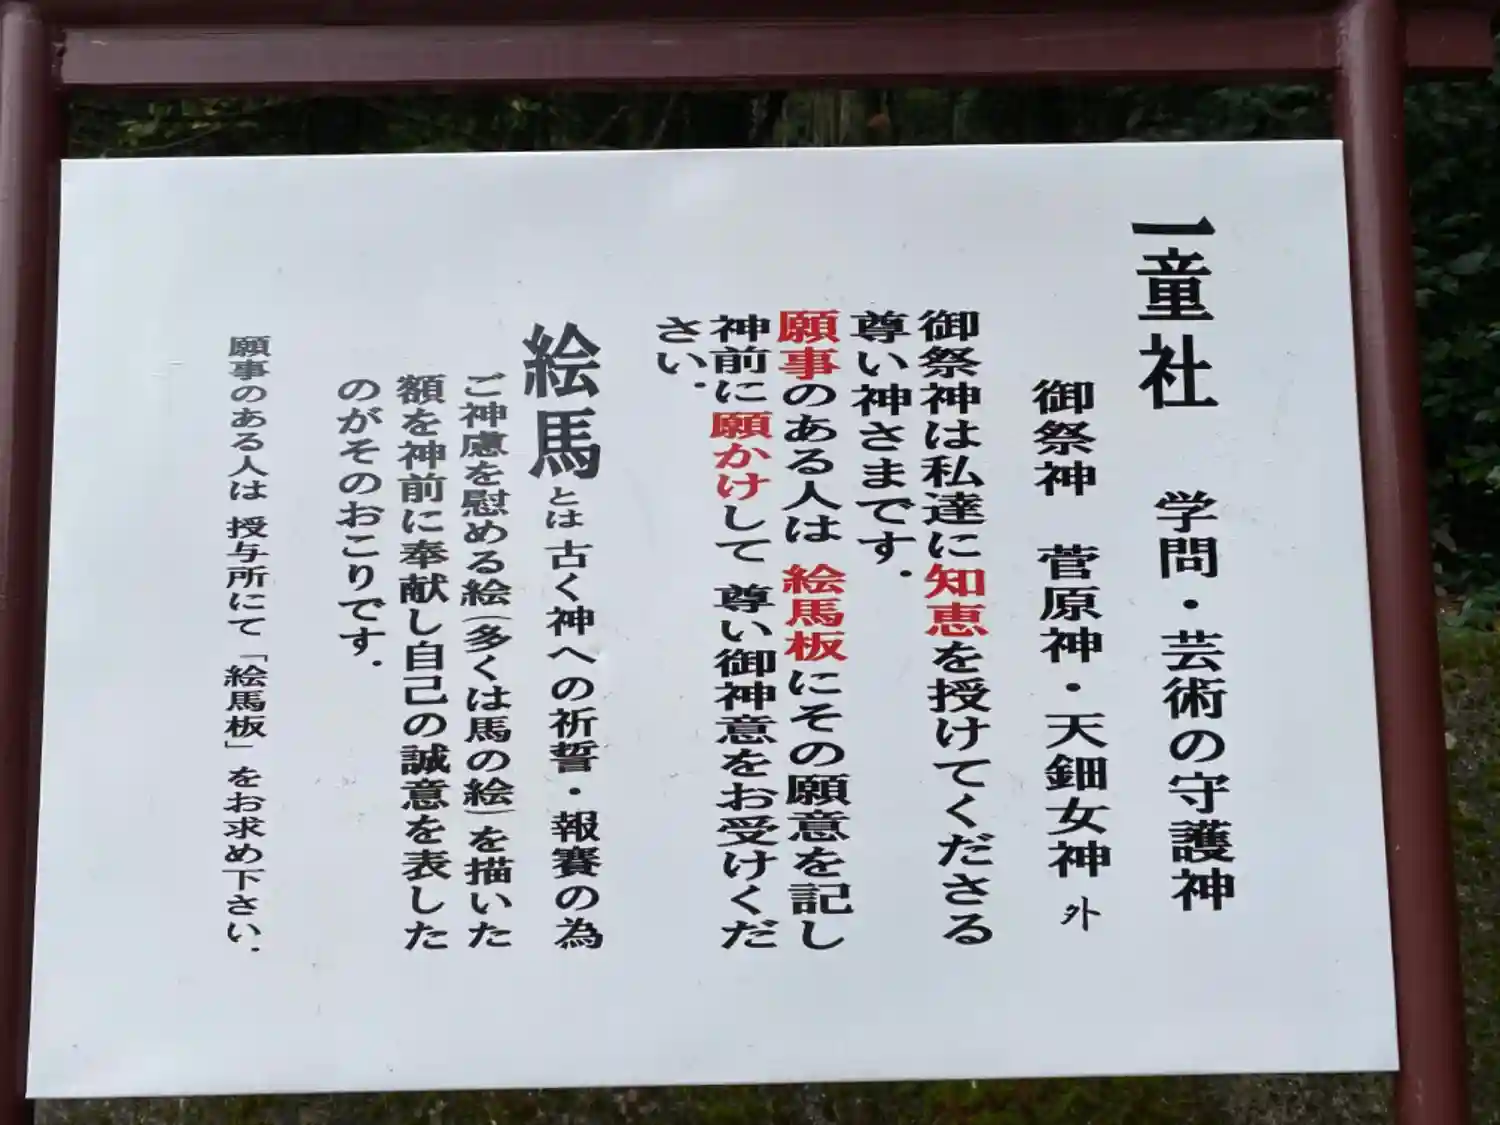 一童社　学問・芸術の守護神
御祭神　菅原神・天鈿女神 外
御祭神は私達に知恵を授けてくださる
尊い神さまです.
願事のある人は 絵馬板にその願意を記し
神前に願かけして 尊い御神意をお受けくだ
さい.
絵馬とは古く神への祈誓・報賽の為
ご神慮を慰める絵(多くは馬の絵)を描いた
額を神前に奉献し自己の誠意を表した
のがそのおこりです.
願事のある人は 授与所にて「絵馬板」をお求め下さい.